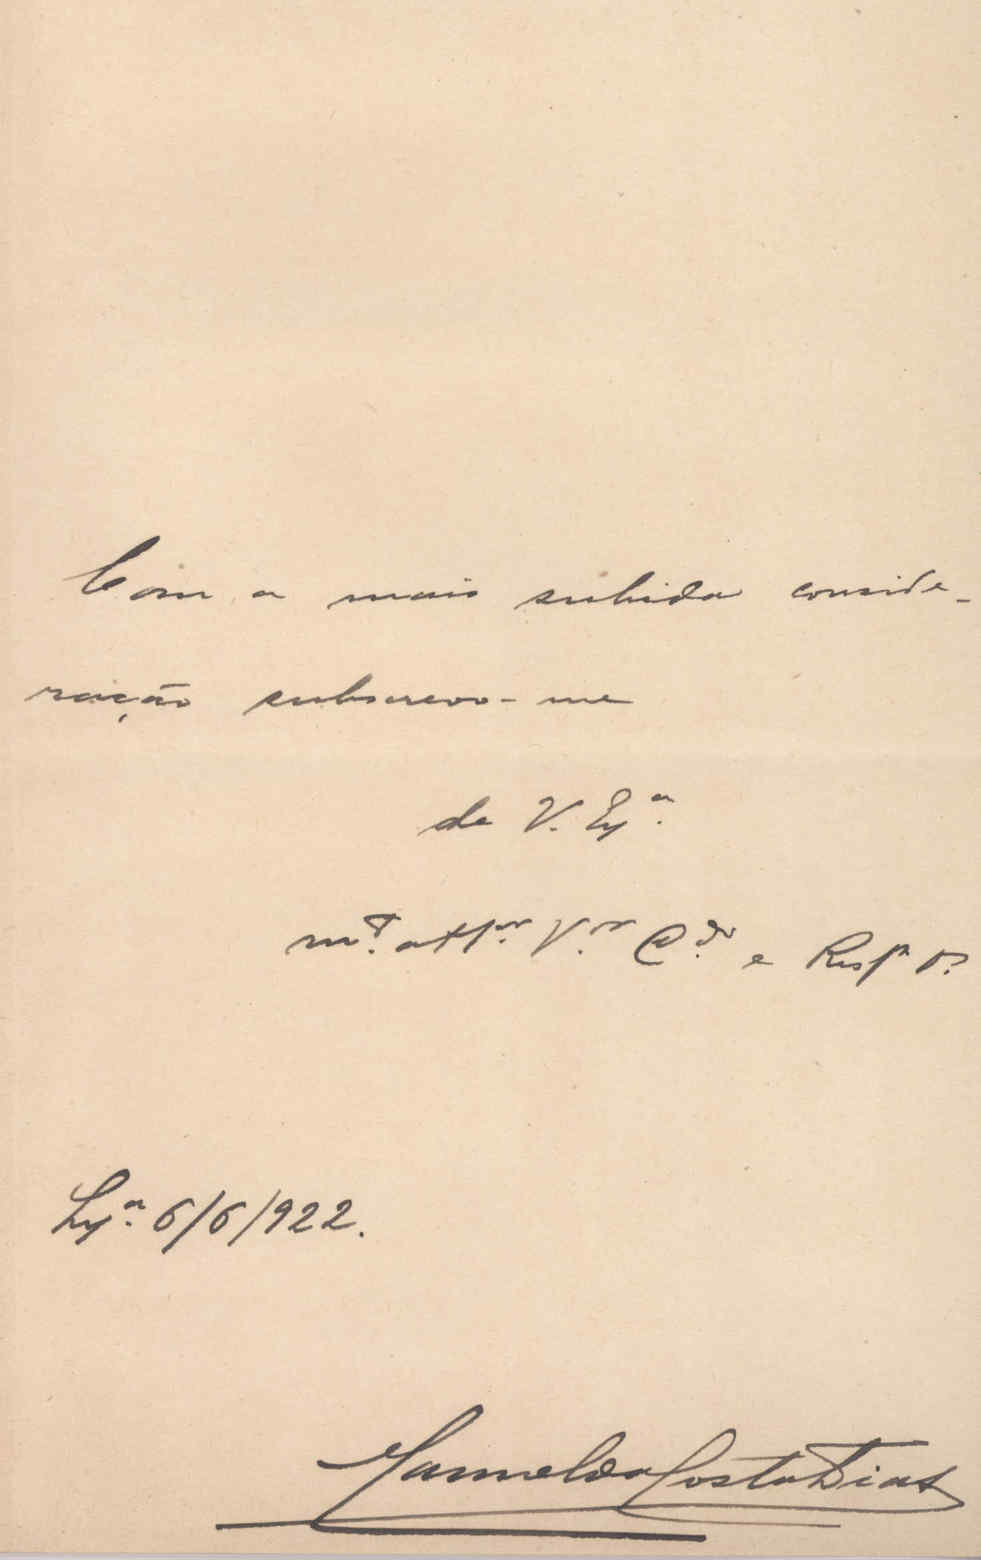 Com a mais subida conside-
ração subscrevo-me
de V. Exª.
mt.º attº. Vºr. C.do e Resp.
Lxª. 6/6/922.
Manuel da Costa Dias